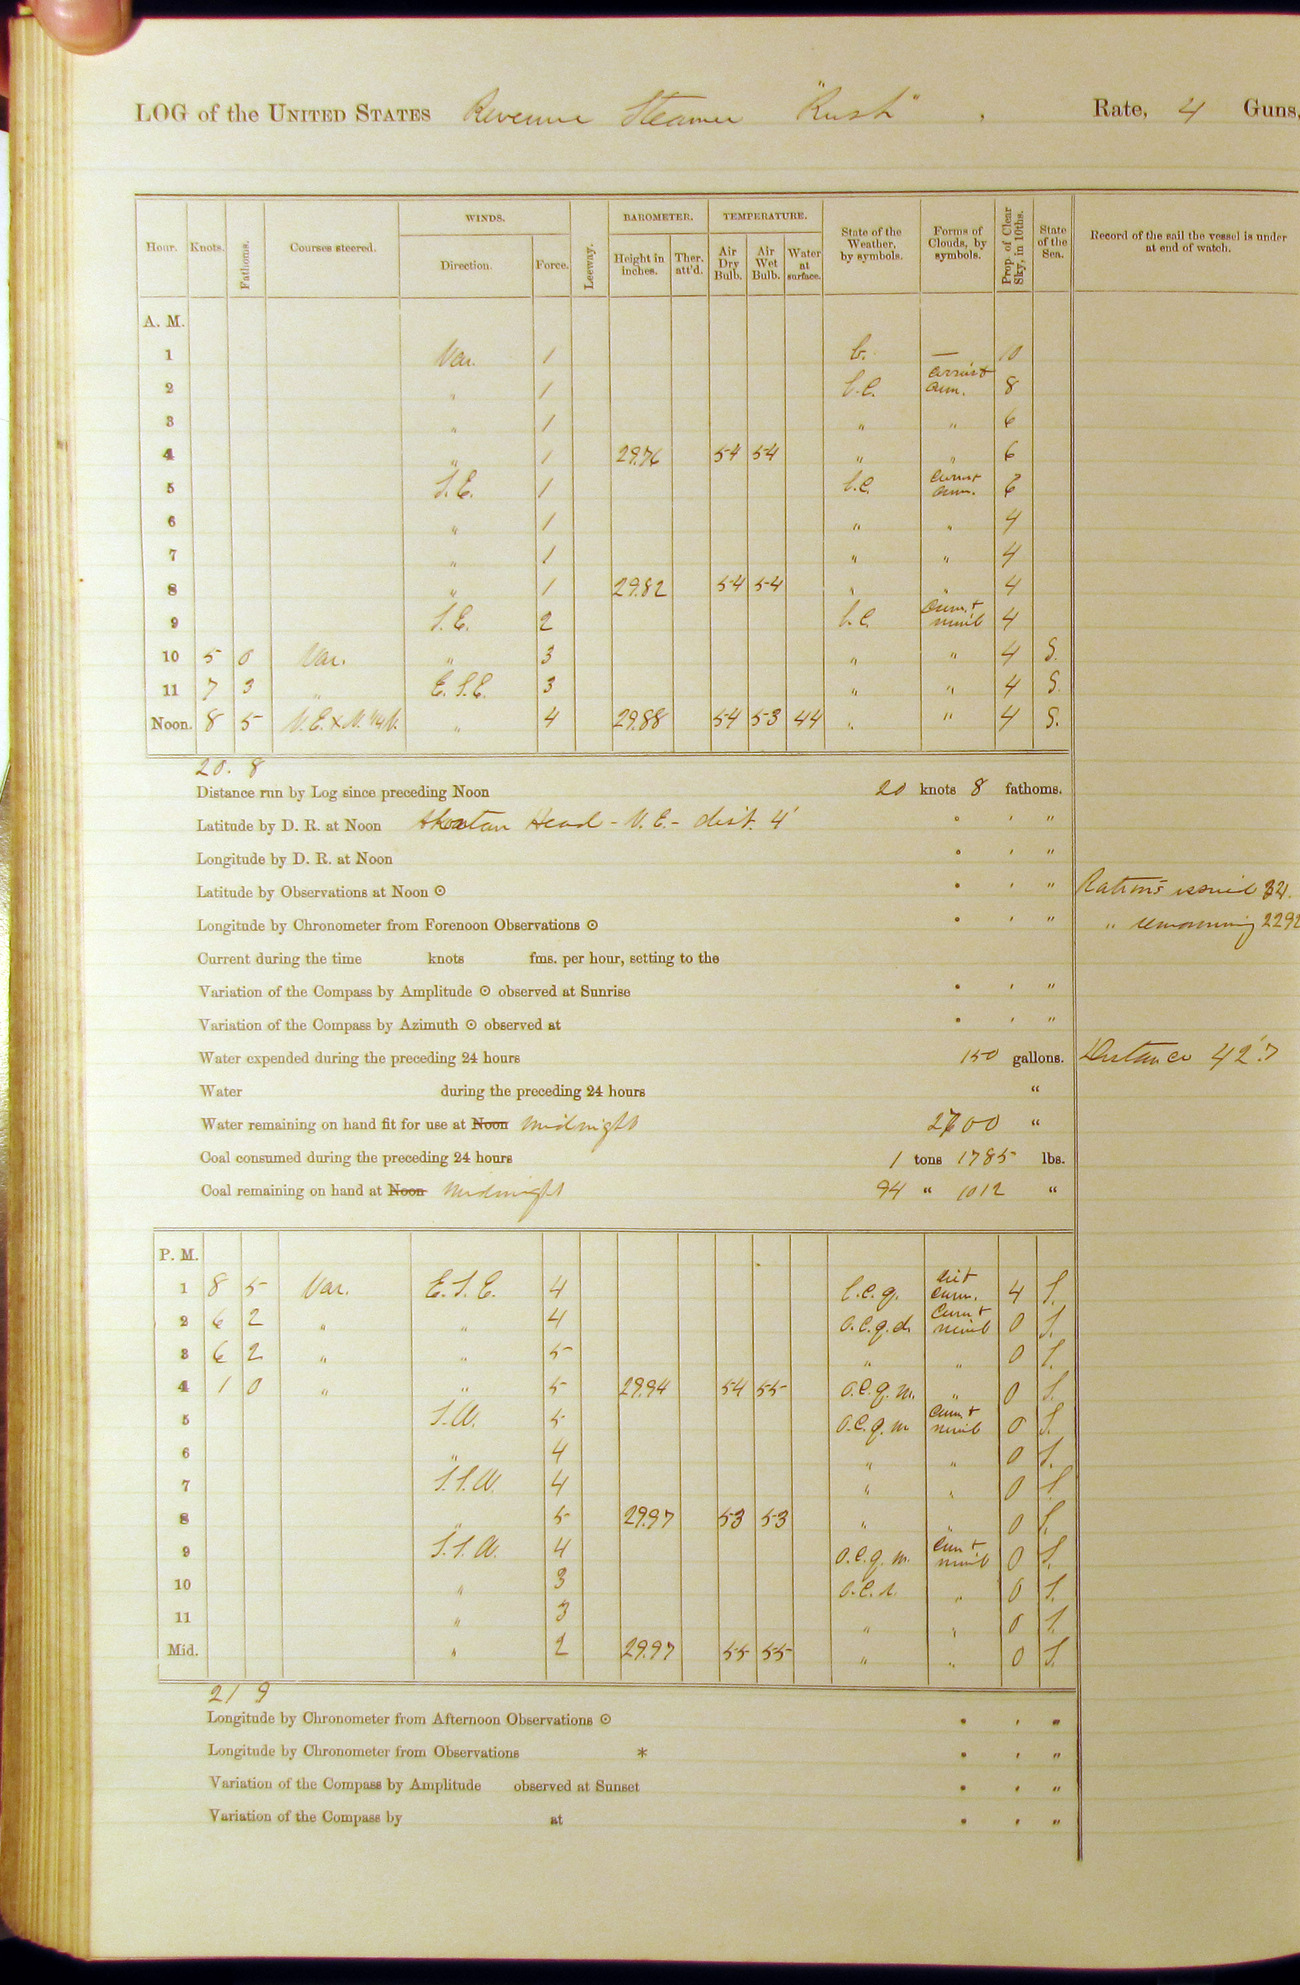 LOG of the UNITED STATES Revenue Steamer "Rush", Rate, 4 Guns,
Hour. Knots. Fathoms. Courses steered. WINDS. Direction. Force. Leeway. BAROMETER. Height in inches. Ther. att'd. TEMPERATURE. Air Dry Bulb. Air Wet Bulb. Water at surface. State of the Weather, by symbols. Forms of Clouds, by symbols. Prop. of Clear Sky, in 10ths. State of the Sea. Record of the sail the vessel is under at end of watch.
A. M.
1 Var. 1 b. — 10
2 " 1 b.c. cirrus & cum. 8
3 " 1 " " 6
4 " 1 29.76 54 54 " " 6
5 S.E. 1 b.c. cirrus & cum. 6
6 " 1 " " 4
7 " 1 " " 4
8 " 1 29.82 54 54 " " 4
9 S.E. 2 b.c. cum. & nimb 4
10 5 0 Var. " 3 " " 4 S.
11 7 3 " E.S.E. 3 " " 4 S.
Noon. 8 5 " 4 29.88 54 53 44 " " 4 S.
20. 8
Distance run by Log since preceding Noon 20 knots 8 fathoms.
Latitude by D. R. at Noon Akoutan Head - N.E. - dist. 4' ° ' "
Longitude by D. R. at Noon ° ' "
Latitude by Observations at Noon ☉ ° ' " Rations issued 34.
Longitude by Chronometer from Forenoon Observations ☉ ° ' " " remaining 2292
Current during the time knots fms. per hour, setting to the
Variation of the Compass by Amplitude ☉ observed at Sunrise ° ' "
Variation of the Compass by Azimuth ☉ observed at ° ' "
Water expended during the preceding 24 hours 150 gallons. Distance 42'.7
Water during the preceding 24 hours "
Water remaining on hand fit for use at Noon Midnight 2700 "
Coal consumed during the preceding 24 hours 1 tons 1785 lbs.
Coal remaining on hand at Noon Midnight 94 " 1012 "
P. M.
1 8 5 Var. E.S.E. 4 b.c.q. cum. 4 S.
2 6 2 " " 4 o.c.q.d. cum & nimb 0 S.
3 6 2 " " 5 " " 0 S.
4 1 0 " " 5 29.94 54 55 o.c.q.m. " 0 S.
5 S.W. 5 o.c.q.m cum & nimb 0 S.
6 " 4 " " 0 S.
7 S.S.W. 4 " " 0 S.
8 " 5 29.97 53 53 " " 0 S.
9 S.S.W. 4 o.c.q.m. cum & nimb 0 S.
10 " 3 o.c.r. " 0 S.
11 " 3 " " 0 S.
Mid. " 2 29.97 55 55 " " 0 S.
21 9
Longitude by Chronometer from Afternoon Observations ☉ ° ' "
Longitude by Chronometer from Observations * ° ' "
Variation of the Compass by Amplitude observed at Sunset ° ' "
Variation of the Compass by at ° ' "